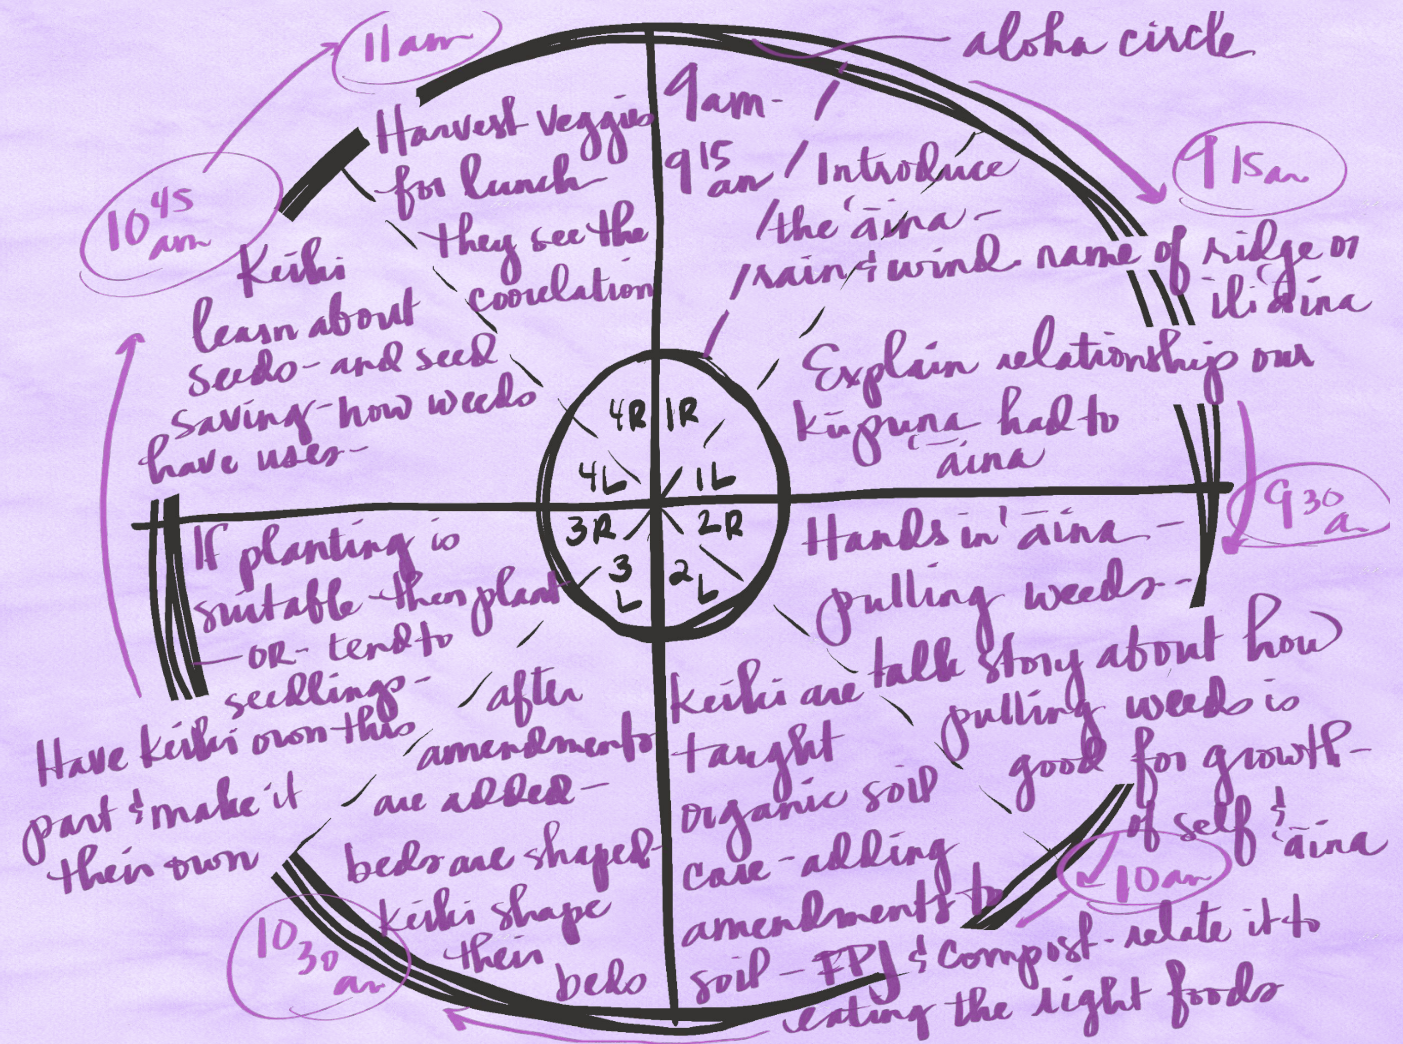 aloha circle
9am-
9 15 am
Introduce
the 'āina -
rain & wind. name of ridge or
ili 'āina
9 15 am
Explain relationship our
kūpuna had to
'āina
9 30 a
Hands in 'āina -
pulling weeds --
talk story about how
pulling weeds is
good for growth -
of self &
'āina
10 am
Keiki are
taught
organic soil
care - adding
amendments to
soil - FPJ & compost - relate it to
eating the right foods
10 30 am
after
amendments
are added -
beds are shaped -
Keiki shape
their
beds
If planting is
suitable - then plant
- OR - tend to
seedlings -
Have keiki own this
part & make it
their own
10 45 am
Keiki
learn about
seeds - and seed
saving - how weeds
have uses -
11 am
Harvest veggies
for lunch
they see the
coorelation
4R 1R
4L 1L
3R 2R
3 L 2 L